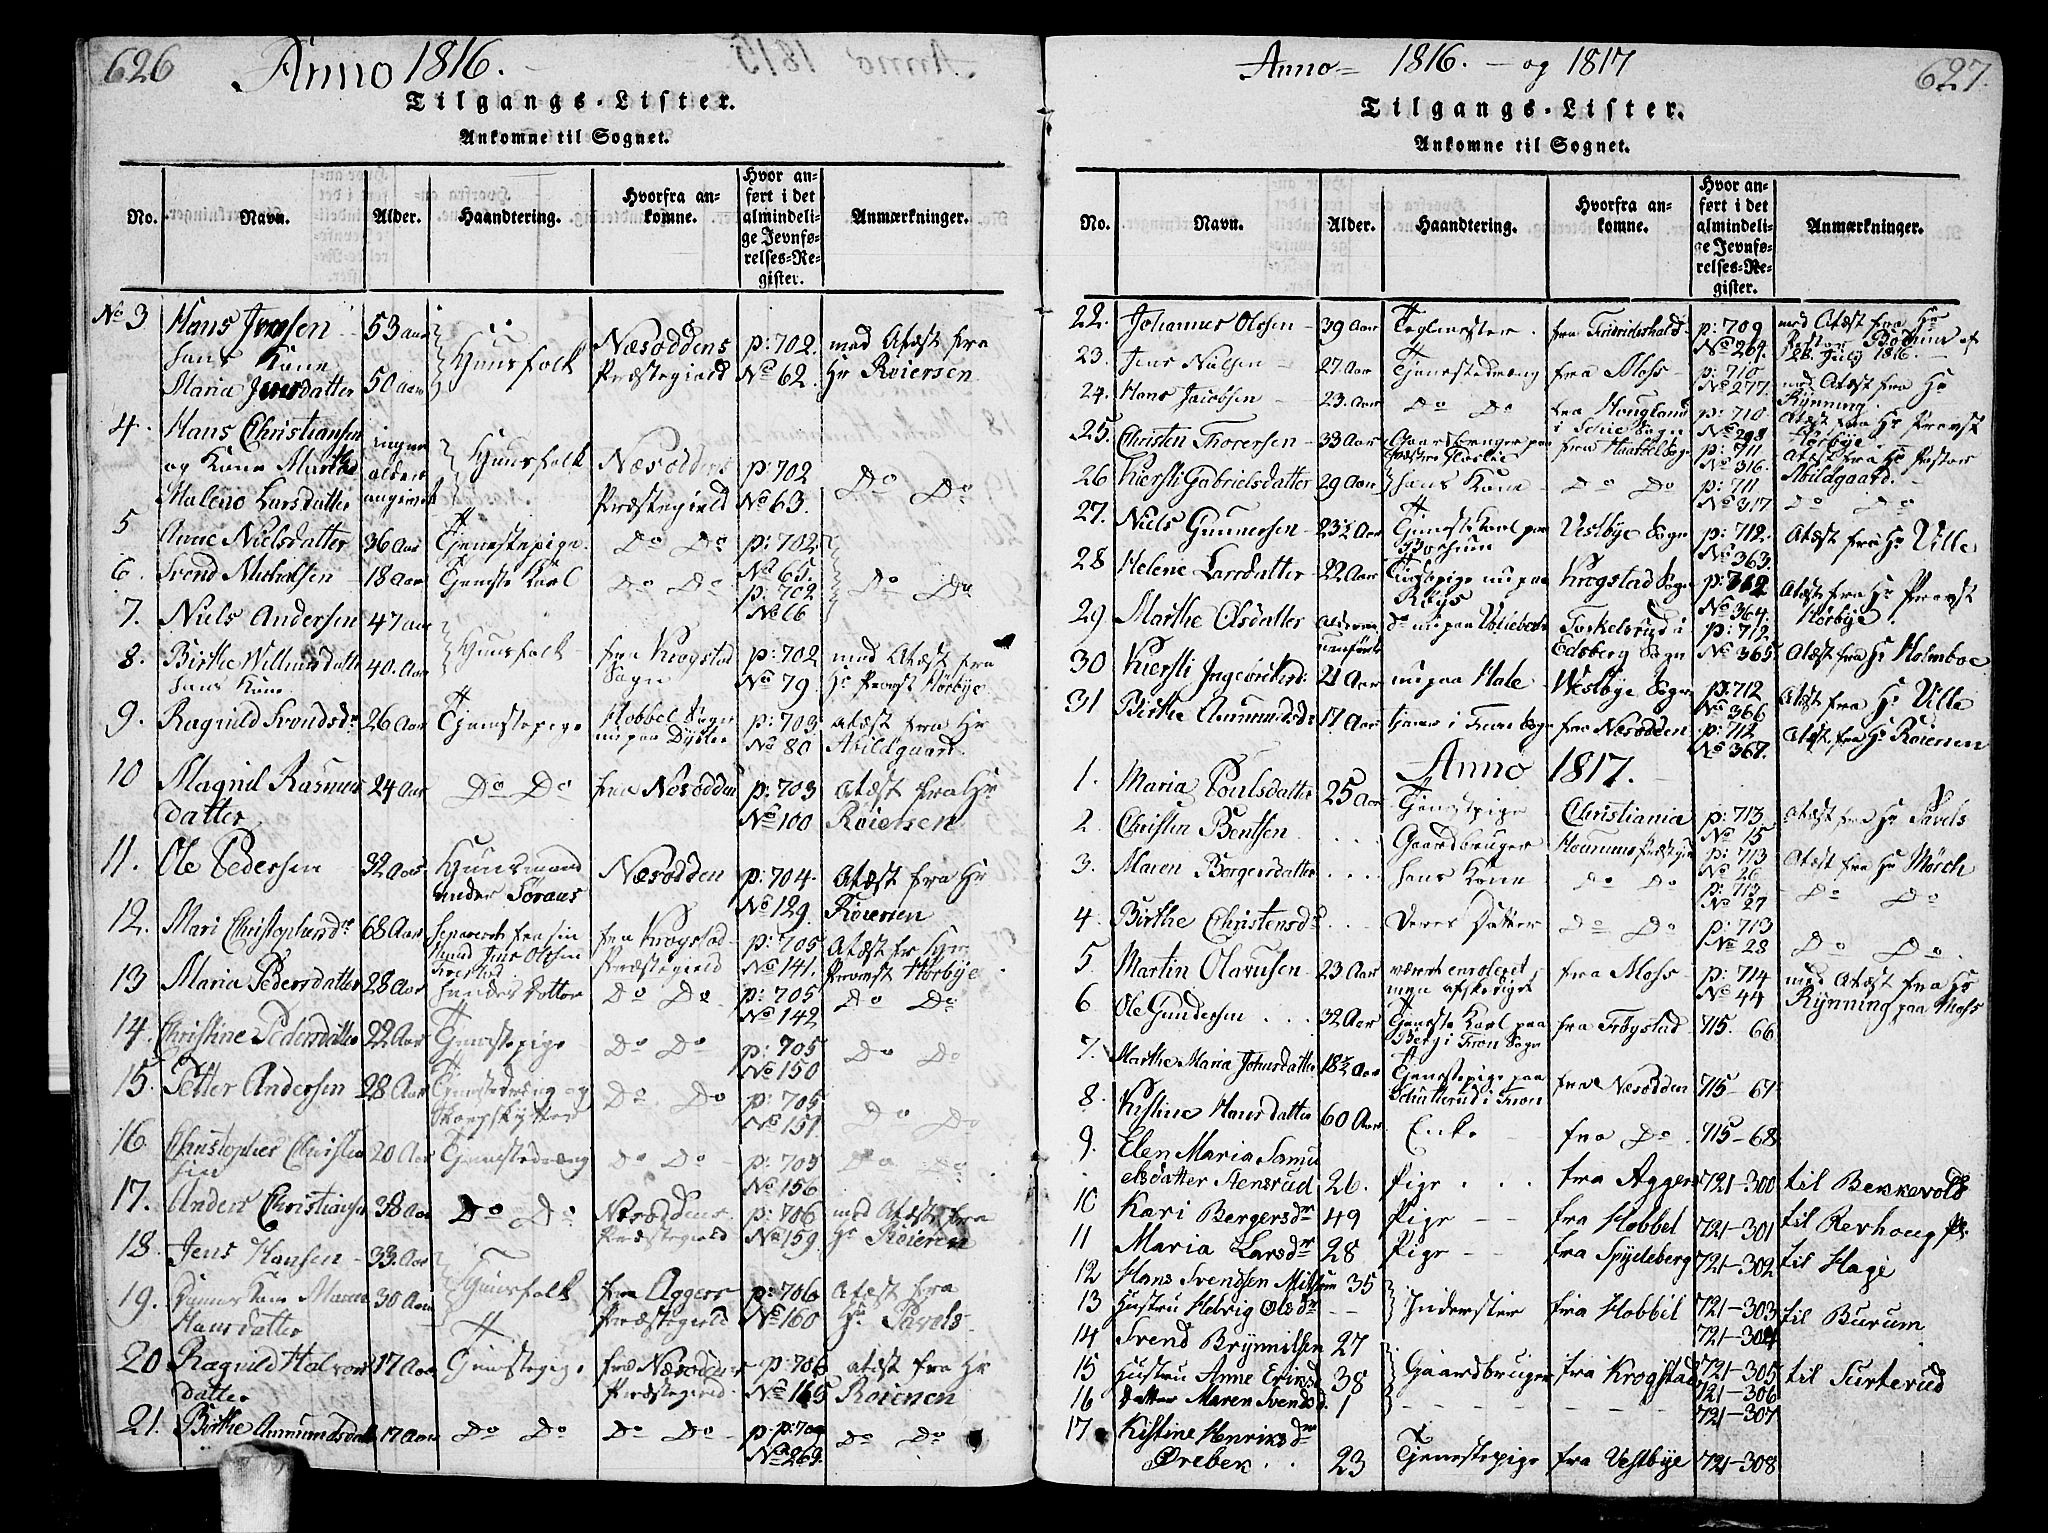 626
Anno 1816.
Tilgangs-Lister.
Ankomne til Sognet.
No. Navn. Alder. Haandtering. Hvorfra ankomne. Hvor anført i det almindelige Jevnførelses-Register. Anmærkninger.
No 3 Hans Jensen 53 aar Huusfolk Næsoddens p: 702. med Atæst fra
hans Kone Præstegield No 62. Hr Roiersen
Maria Jensdatter 50 aar
4. Hans Christiansen ingen Huusfolk Næsoddens p: 702 Do Do
og Kone Marthe alder Præstegield No 63.
Maleno Larsdatter angivet
5 Anne Nielsdatter 36 Aar Tjenestepige Do Do p: 702. No 65.
6. Svend Michelsen 18 Aar Tjeneste Karl Do Do p: 702 Do Do
7. Niels Andersen 47 aar Huusfolk fra Krogstad p: 702 med Atæst fra
8. Birthe Willumsdatter 40. Aar Sogn No 79. Hr Provst Hörbye
hans Kone
9. Ragnild Svendsdr 26 Aar Tjenestepige Hobbel Sogn p: 703 atæst fra Hr
nu paa Dyster No 80 Abildgaard.
10 Magnil Rasmus 24 Aar Do Do fra Nesodden p: 703 Atæst fra Hr
datter No 100 Roiersen
11. Ole Pedersen 32 Aar Huusmand Næsodden p: 704. Atæst fra Hr
under Soraas No 129. Roiersen
12. Mari Christophersdr 68 Aar Separeret fra sin fra Krogstad p: 705 Atæst fr Hr
Mand Jens Olsen Præstegield No 141. Provst Hörbye
13 Maria Pedersdatter 28 Aar hendes Datter Do Do p: 705 Do Do
No 142
14. Christine Pedersdatter 22 Aar Tjenestepige Do Do p: 705 Do Do
No 150
15. Petter Andersen 28 Aar Tjenestedreng og Do Do p: 705 Do Do
Skougskytter No 151.
16 Christopher Christen 20 Aar Tjenestedreng Do Do p: 705 Do Do
sen No 156
17. Anders Christiansen 38 Aar Do Do Nesoddens p: 706 med Atæst fra
Præstegield No 159. Hr Roiersen
18. Jens Hansen 33. Aar Huusfolk fra Aggers p: 706 Atæst fra
19. Kone Maren 30 Aar Præstegield No 160 Hr Pavels
Hansdatter
20 Ragnild Halvors 17 Aar Tjenestepige fra Næsoddens p: 706 atæst fra Hr
datter Præstegield No 165 Roiersen
21. Birthe Ammundsdatter 17 Aar Do Do Do Do p: 709 Do Do
No 269.
627.
Anno 1816. og 1817
Tilgangs-Lister.
Ankomne til Sognet.
No. Navn. Alder. Haandtering. Hvorfra ankomne. Hvor anført i det almindelige Jevnførelses-Register. Anmærkninger.
22. Johannes Olsen 39 Aar Teglmester fra Fridrichshald p: 709 med Atæst fra Hr
No 264. Pastor af
23. Jens Nielsen 27 Aar Tjenestedreng fra Moss p: 710 26 July 1816.
No 277. med Atæst fra Hr
24. Hans Jacobsen 23. Aar Do Do fra Hougland p: 710 Rynning.
i Schie Sogn No 298 Atæst fra Hr Provst
25. Christen Thoresen 33 Aar Gaardbruger paa fra Haabbel Sogn p: 711 Hörbye
No 316. Atæst fra Hr Pastor
26 Kiersti Gabrielsdatter 29 Aar hans Kone Do Do p: 711 Abildgaard.
No 317 Do Do
27. Niels Gunnersen 23½ Aar Tjenestekarl paa Vestbye Sogn p: 712. Atæst fra Hr Ville
No 363.
28 Helene Larsdatter 22 Aar Tienistepige nu paa Krogstad Sogn p: 712 Atæst fra Hr Provst
No 364. Hörbye.
29 Marthe Olsdatter Alderen Do nu paa i p: 712
uanført Edsberg Sogn No 365. Atæst fra Hr Holmboe
30 Kiersti Ingebrektsd: 21 Aar nu paa Hale Westbye Sogn p: 712 Atæst fra Hr Ville
No 366
31 Birthe Ammundsdr 17 Aar tjener i Fron Sogn fra Næsodden p: 712 Atæst fra Hr Roiersen
No 367.
Anno 1817.
1. Maria Poulsdatter 25 Aar Tjenestpige Christiania p: 713 Atæst fra Hr Pavels
No 15
2. Christen Bentsen . . . . Gaardbruger p: 713 Atæst fra Hr Mörch
No 26
3. Maren Borgersdatter . . . . hans Kone Do Do p: 713 Do Do
No 27
4. Birthe Christensdr . . . Deres Datter Do Do p: 713
No 28 Do Do
5 Martin Olavesen 23 Aar været enroleret, fra Moss p: 714 med Atæst fra Hr
men afskediget No 44 Rynning paa Moss
6 Ole Gundersen . . . 32 Aar Tjeneste Karl paa fra Trögstad 715. 66
Berg i Fron Sogn
7. Marthe Maria Johnsdatter 18½ Aar Tjenestepige paa fra Næsodden 715-67
i Fron
8. Kistine Hansdatter 60 Aar Enke fra Do. 715-68
9. Elen Maria Samu
elsdatter Aensrud 26. Pige . . . fra Agger 721-300 til Bekkevold
10 Kari Bergersdr 49 Pige fra Hobbel 721-301 til Revhoug
11 Maria Larsdr 28 Pige fra Spydeberg 721-302 til Hage
12 Hans Svendsen 35
13 Hustru Helvig Olsdr -- Inderster fra Hobbel 721-303 til Burum
14 Svend Brynnilsen 27 721-304
15 Hustru Anne Eriksd 38 Gaardbruger fra Krogstad 721-305 til Surterud
16 Datter Maren Svendsd. 1 721-306
721-307
17 Kistine Henriksdr
Örebek . . 23 Tjenestepige fra Vestbye 721-308